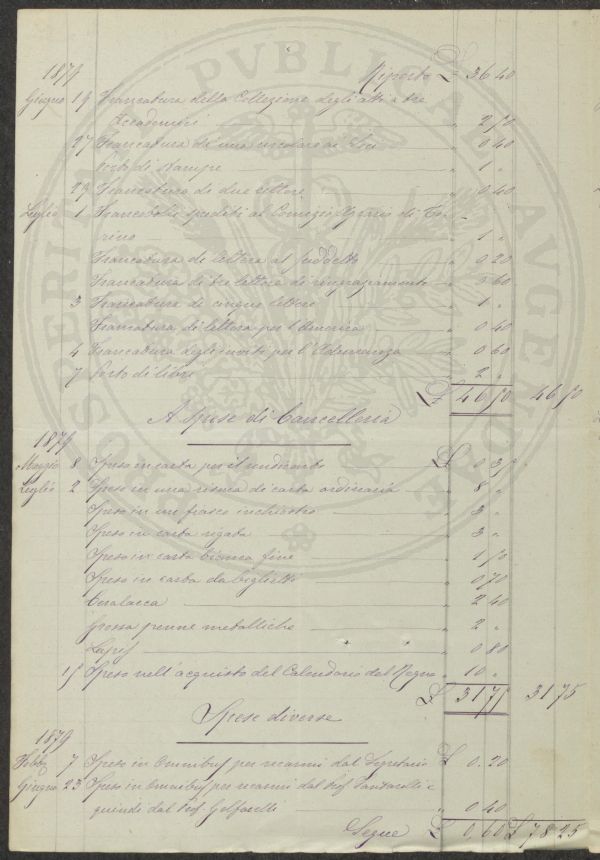 1879 Riporto £ 36 40
Giugno 19 Francatura della Collezione degli atti a tre
Accademici " 2 50
27 Francatura di una circolare ai Soci " 0 40
Porto di stampe " 1 "
29 Francatura di due lettere " 0 40
Luglio 1 Francobolli spediti al Comizio Agrario di To-
rino " 1 "
Francatura di lettera al suddetto " 0 20
Francatura di tre lettere di ringraziamento " 0 60
3 Francatura di cinque lettere " 1 "
Francatura di lettera per l'America " 0 40
4 Francatura degli inviti per l'Adunanza " 0 60
7 Porto di libri " 2 "
£ 46 50 46 50
A Spese di Cancelleria
1879
Maggio 8 Speso in carta per il £ 0 35
Luglio 2 Speso in una risma di carta ordinaria " 8 "
Speso in un fiasco inchiostro " 3 "
Speso in carta rigata " 3 "
Speso in carta bianca fine " 1 50
Speso in carta da biglietto " 0 70
Ceralacca " 2 40
Grossa penne metalliche " 2 "
Lapis " " " 0 80
15 Speso nell'acquisto del Calendario del Regno " 10 "
£ 31 75 31 75
Spese diverse
1879
Febb. 7 Speso in Omnibus per recarmi dal Segretario £ 0.20
Giugno 23 Speso in Omnibus per recarmi dal Prof. Santarelli e
quindi dal Prof. Golfarelli " 0 40
Segue £ 0,60 £ 78 25
PROSPERITATI PVBLICAE AVGENDAE